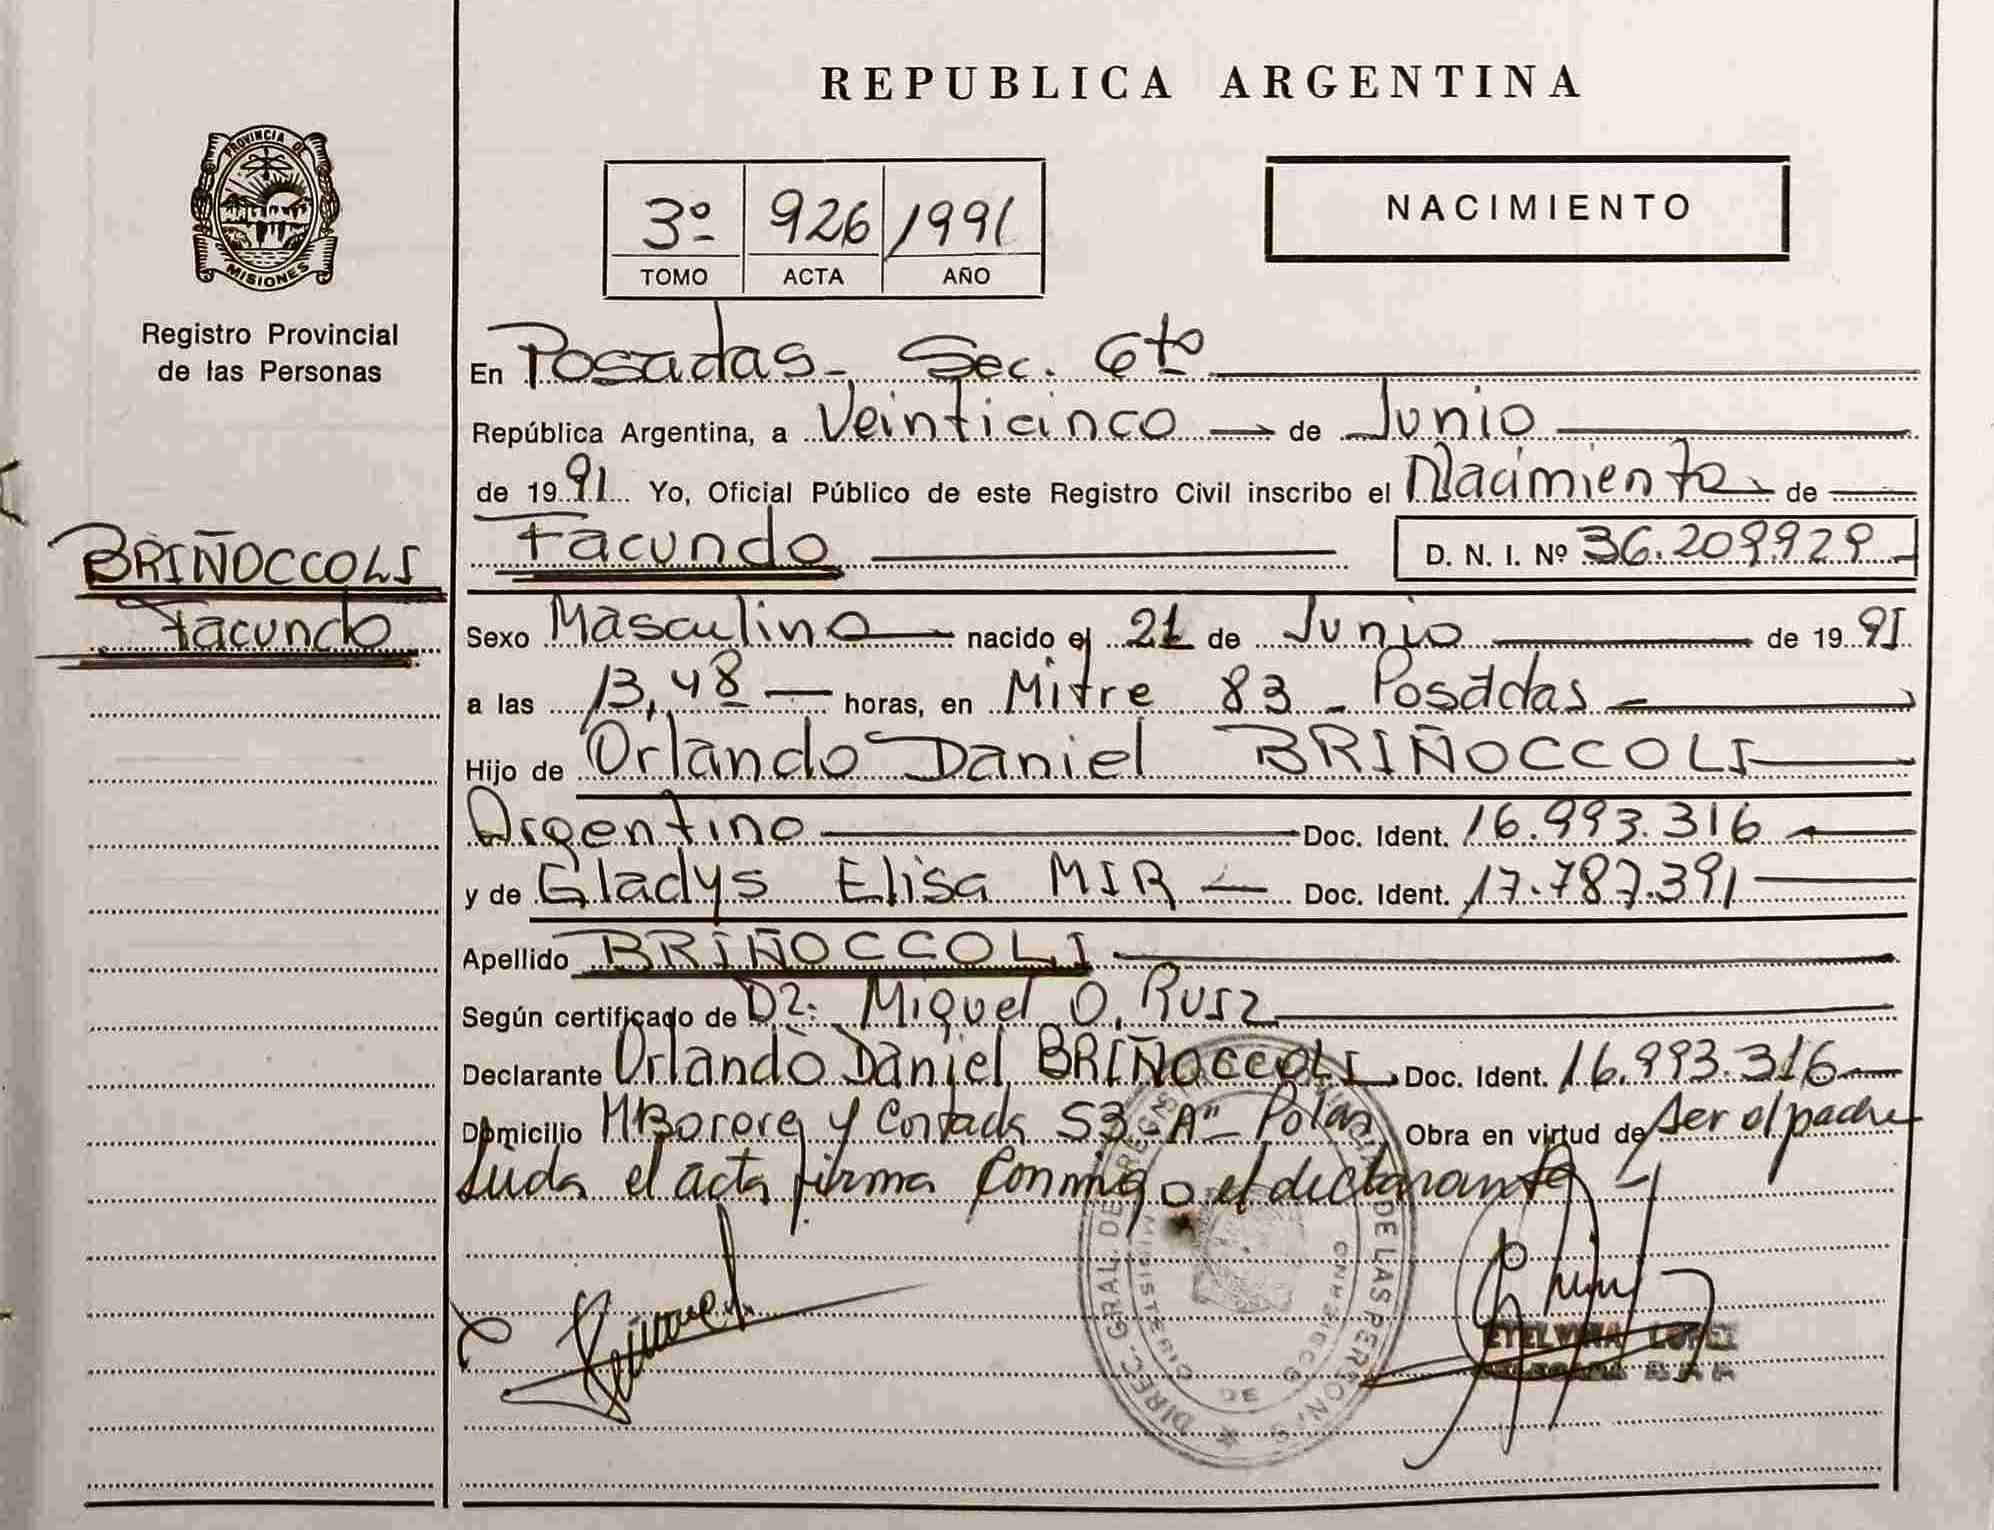 REPUBLICA ARGENTINA
PROVINCIA DE
MISIONES
Registro Provincial
de las Personas
3º 926 1991
TOMO ACTA AÑO
NACIMIENTO
En Posadas-, Sec. 6to
República Argentina, a Veinticinco de Junio
de 1991 Yo, Oficial Público de este Registro Civil inscribo el Nacimiento de
Facundo D. N. I. Nº 36.209.929
BRIÑOCCOLI
Facundo
Sexo Masculino nacido el 21 de Junio de 1991
a las 13,48 horas, en Mitre 83 - Posadas
Hijo de Orlando Daniel BRIÑOCCOLI
Argentino Doc. Ident. 16.993.316
y de Gladys Elisa MIR Doc. Ident. 17.787.391
Apellido BRIÑOCCOLI
Según certificado de Dr. Miguel O.
Declarante Orlando Daniel BRIÑOCCOLI Doc. Ident. 16.993.316
Domicilio y 53 Obra en virtud de Ser el padre
Leida el acta firma conmigo el declarante
DIREC. GRAL. DE DE LAS PERSONAS
MINISTERIO DE
ETELVINA LOPEZ